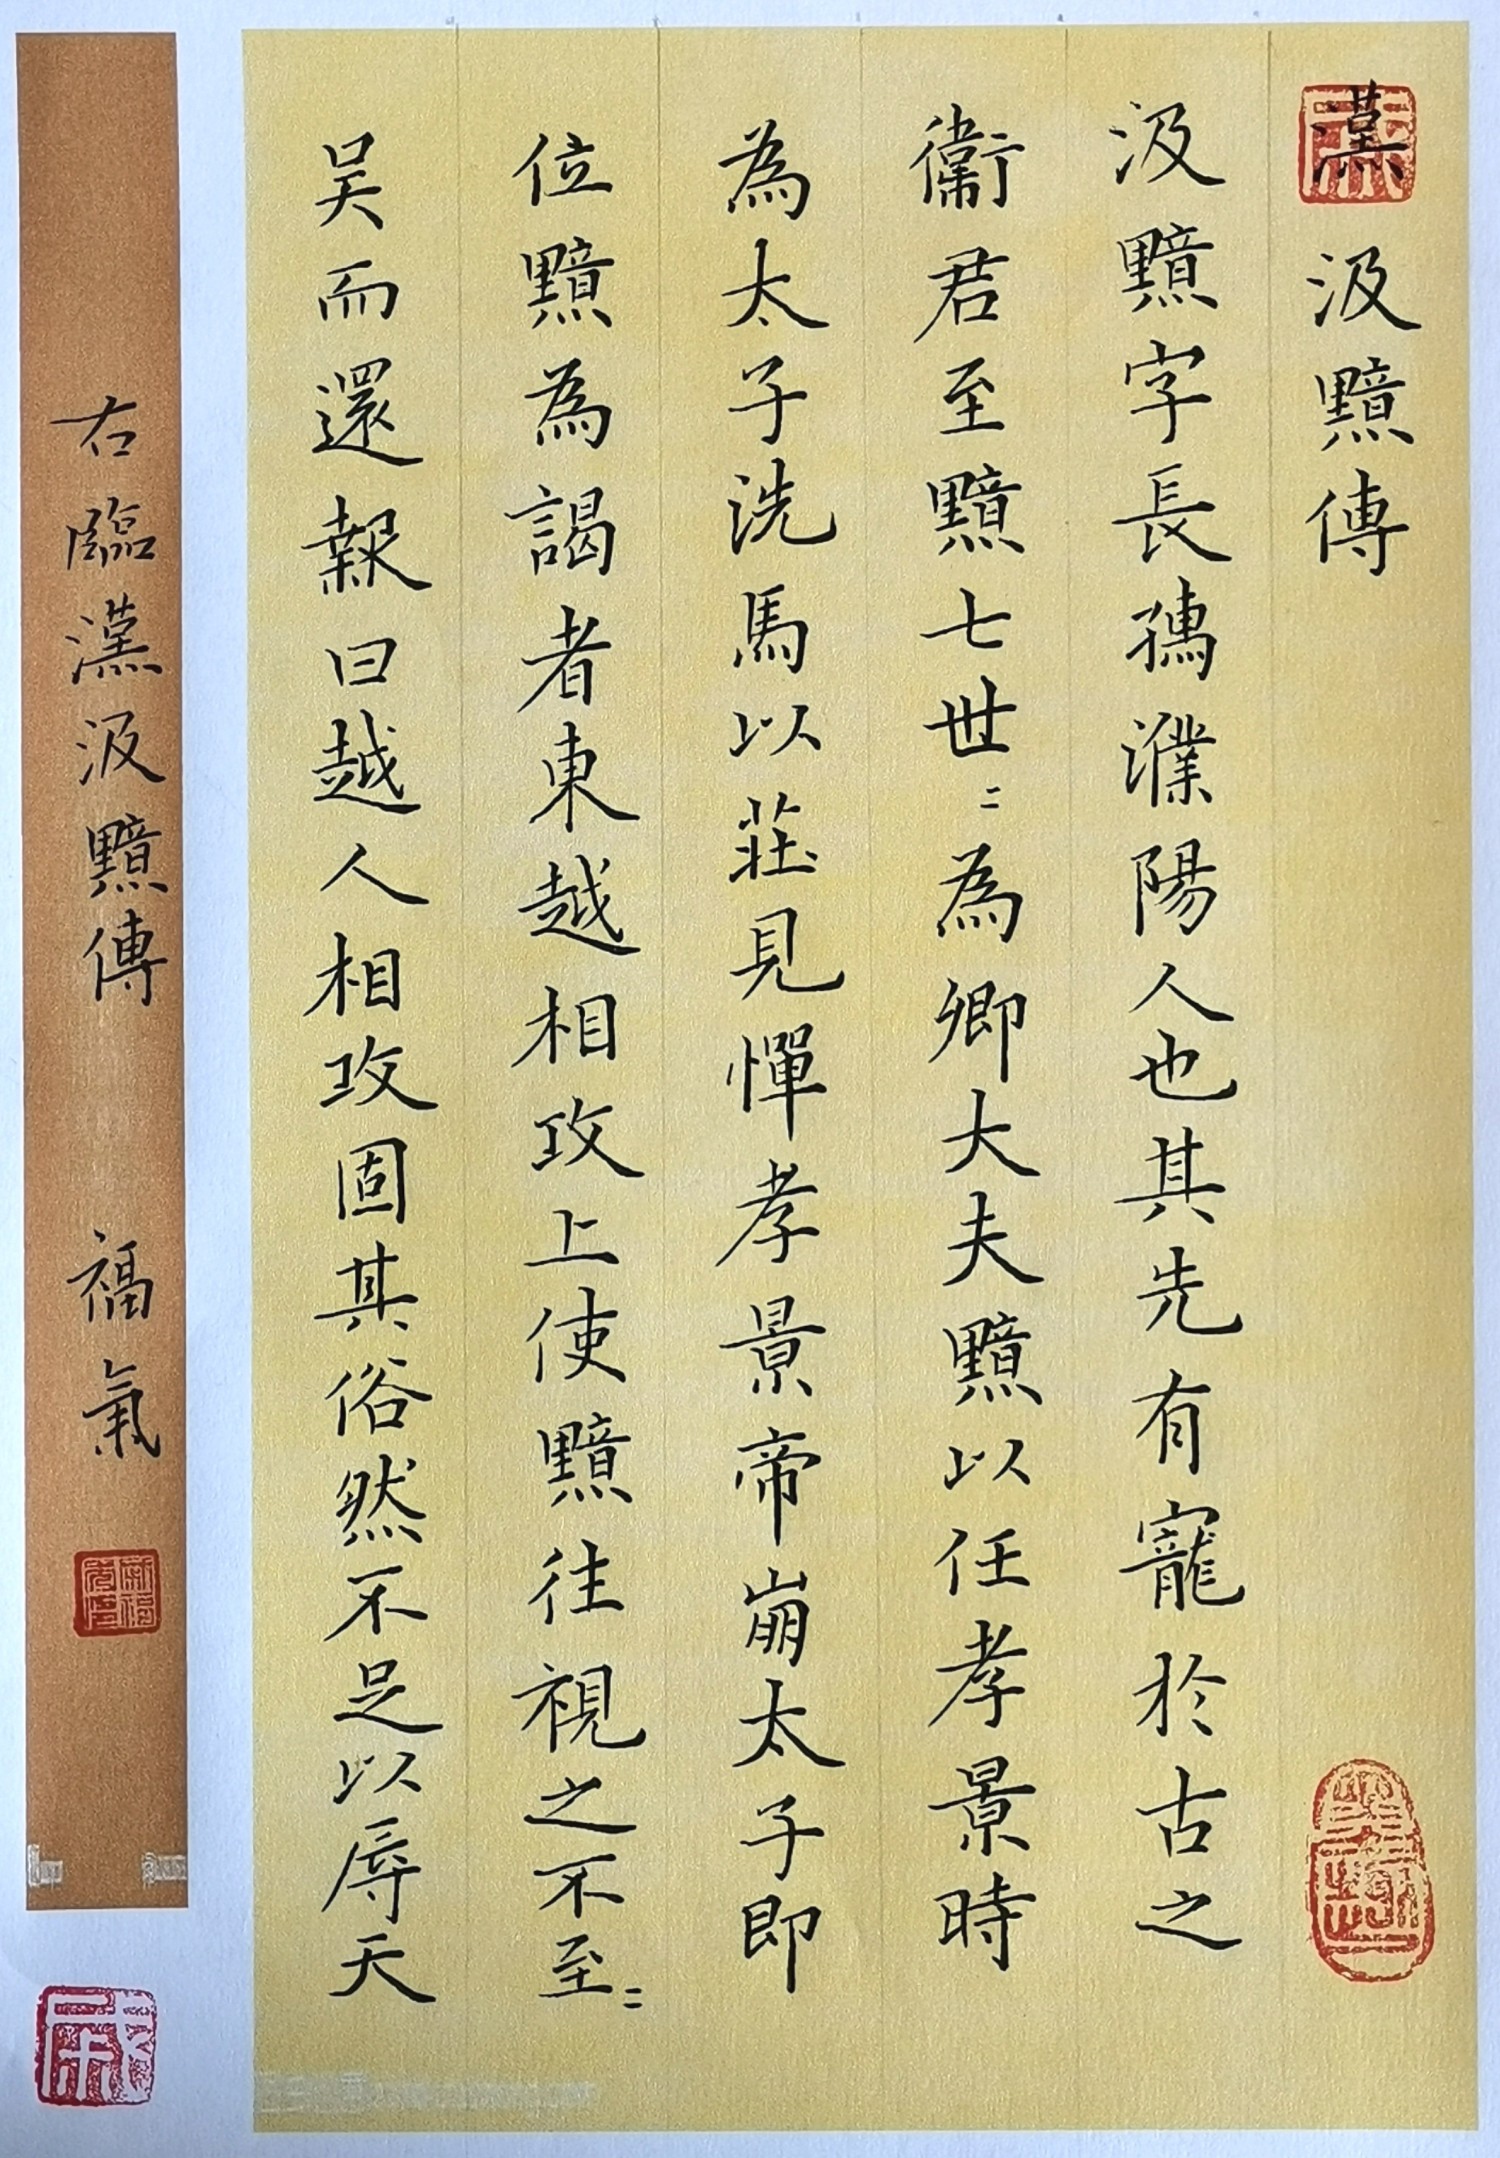 漢汲黯傳
汲黯字長孺濮陽人也其先有寵於古之
衛君至黯七世〻為卿大夫黯以任孝景時
為太子洗馬以莊見憚孝景帝崩太子即
位黯為謁者東越相攻上使黯往視之不至〻
吴而還報曰越人相攻固其俗然不足以辱天
右臨漢汲黯傳 福氣